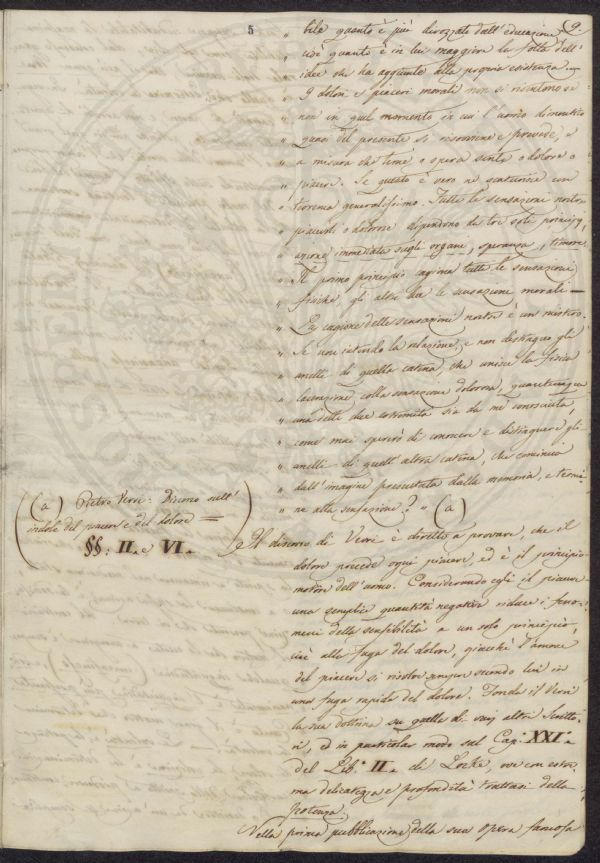 5
9.
" bile quanto è più dirozzato dall'educazione,
" cioè quanto è in lui maggiore la folla dell'
" idee che ha aggiunte alla propria esistenza.
" I dolori e piaceri morali non si risentono se
" non in quel momento in cui l'uomo dimentico
" quasi del presente si risovviene e prevede, e
" a misura che teme o spera sente o dolore o
" piacere. Se questo è vero ne scaturisce un
" teorema generalissimo. Tutte le sensazioni nostre
" piacevoli o dolorose dipendono da tre soli principj,
" azione immediata sugli organi, speranza, timore.
" Il primo principio cagiona tutte le sensazioni
" fisiche, gli altri due le sensazioni morali =
" La cagione delle sensazioni nostre è un mistero.
" Se non intendo la relazione, e non distinguo gli
" anelli di quella catena, che unisce la fisica
" lacerazione colla sensazione dolorosa, quantunque
" una delle due estremità sia da me conosciuta,
" come mai spererò di conoscere e distinguere gli
" anelli di quell'altra catena, che comincia
" dall'imagine presentata dalla memoria, e termi-
" na alla sensazione? " (a)
(a) Pietro Verri: Discorso sull'
indole del piacere e del dolore =
§§: II. e VI.
Il discorso di Verri è diretto a provare, che il
dolore precede ogni piacere, ed è il principio
motore dell'uomo. Considerando egli il piacere
una semplice quantità negativa riduce i feno-
meni della sensibilità a un solo principio,
cioè alla fuga del dolore, giacchè l'amore
del piacere si risolve sempre secondo lui in
una fuga rapida del dolore. Fonda il Verri
la sua dottrina su quelle di varj altri Scritto-
ri, ed in particolar modo sul Cap. XXI.
del Lib. II. di Locke, ove con estre-
ma delicatezza e profondità trattasi della
potenza.
Nella prima pubblicazione della sua opera famosa